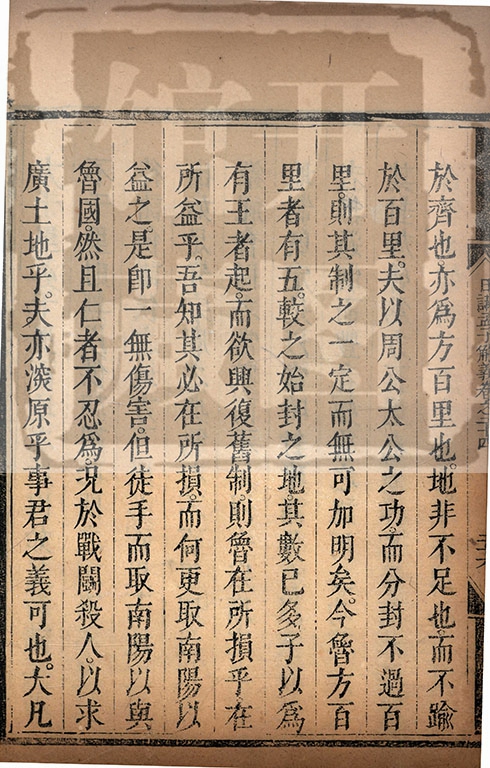 於齊也亦爲方百里也。地非不足也。而不踰
於百里。夫以周公太公之功。而分封不過百
里。則其制之一定而無可加明矣。今魯方百
里者有五。較之始封之地。其數已多。子以爲
有王者起。而欲興復舊制。則魯在所損乎。在
所益乎。吾知其必在所損。而何更取南陽以
益之。是卽一無傷害。但徒手而取南陽以與
魯國。然且仁者不忍爲。况於戰鬬殺人。以求
廣土地乎。夫亦深原乎事君之義可也。大凡
日講孟子解義卷之二十四